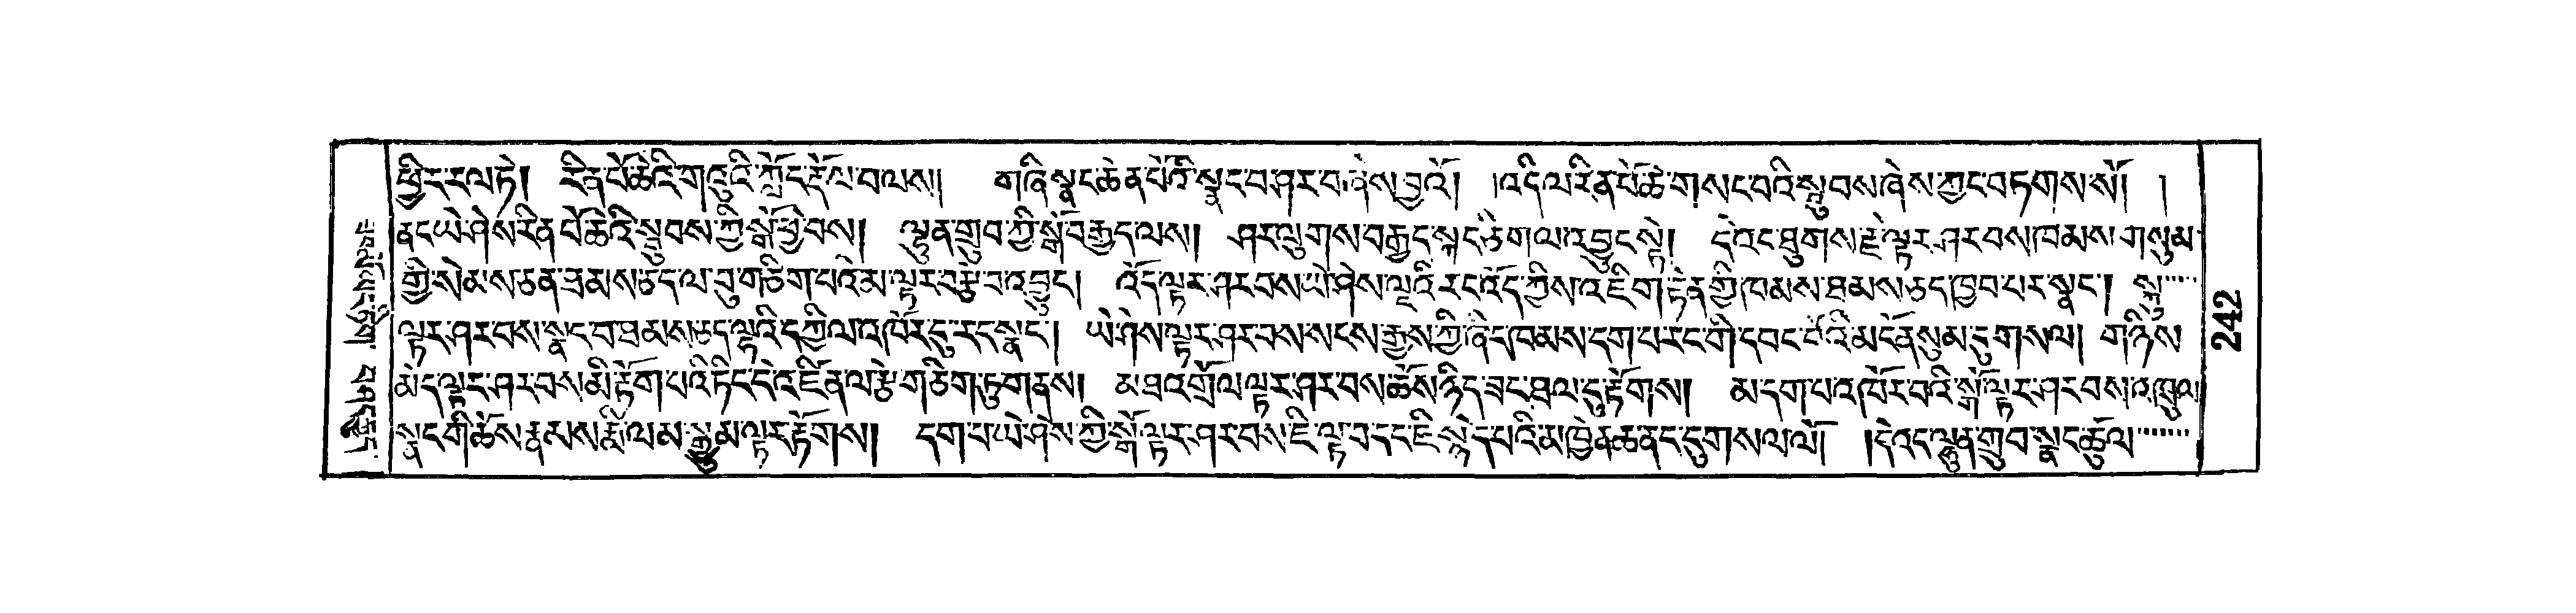 ཕྱིར་རལ་ཏེ། རིན་པོ་ཆེའི་གཞུའི་ཀློད་རྡོལ་བ་ལས། གཞི་སྣང་ཆེན་པོའི་སྣང་བ་ཤར་བ་ཞེས་བྱའོ། །འདི་ལ་རིན་པོ་ཆེ་གསང་བའི་སྦུབས་ཞེས་ཀྱང་བཏགས་སོ། །
ནང་ཡེ་ཤེས་རིན་པོ་ཆེའི་སྦུབས་ཀྱི་སྒོ་ཕྱེ་བས། ལྷུན་གྲུབ་ཀྱི་སྒོ་བརྒྱད་ལས། ཤར་ལུགས་བརྒྱད་སྐད་ཅིག་ལ་འབྱུང་སྟེ། དེ་འང་ཐུགས་རྗེ་ལྟར་ཤར་བས་ཁམས་གསུམ་
གྱི་སེམས་ཅན་ཐམས་ཅད་ལ་བུ་གཅིག་པའི་མ་ལྟར་བརྩེ་བ་འབྱུང། འོད་ལྟར་ཤར་བས་ཡེ་ཤེས་ལྔའི་རང་འོད་ཀྱིས་འཇིག་རྟེན་གྱི་ཁམས་ཐམས་ཅད་ཁྱབ་པར་སྣང་། སྐུ་
ལྟར་ཤར་བས་སྣང་བ་ཐམས་ཅད་ལྷའི་དཀྱིལ་འཁོར་དུ་རང་སྣང་། ཡེ་ཤེས་ལྟར་ཤར་བས་སངས་རྒྱས་ཀྱི་ཞིང་ཁམས་དག་པ་རང་གི་དབང་པོའི་མངོན་སུམ་དུ་གསལ། གཉིས་
མེད་ལྟར་ཤར་བས་མི་རྟོག་པའི་ཏིང་ངེ་འཛིན་ལ་རྩེ་གཅིག་ཏུ་གནས། མཐའ་གྲོལ་ལྟར་ཤར་བས་ཆོས་ཉིད་ཟང་ཐལ་དུ་རྟོགས། མ་དག་པ་འཁོར་བའི་སྒོ་ལྟར་ཤར་བས་འཁྲུལ་
སྣང་གི་ཆོས་རྣམས་རྨི་ལམ་སྒྱུ་མ་ལྟར་རྟོགས། དག་པ་ཡེ་ཤེས་ཀྱི་སྒོ་ལྟར་ཤར་བས་ཇི་ལྟ་བ་དང་ཇི་སྙེད་པའི་མཁྱེན་ཚད་དུ་གསལ་ལོ། །དེ་འང་ལྷུན་གྲུབ་སྣང་ཚུལ་